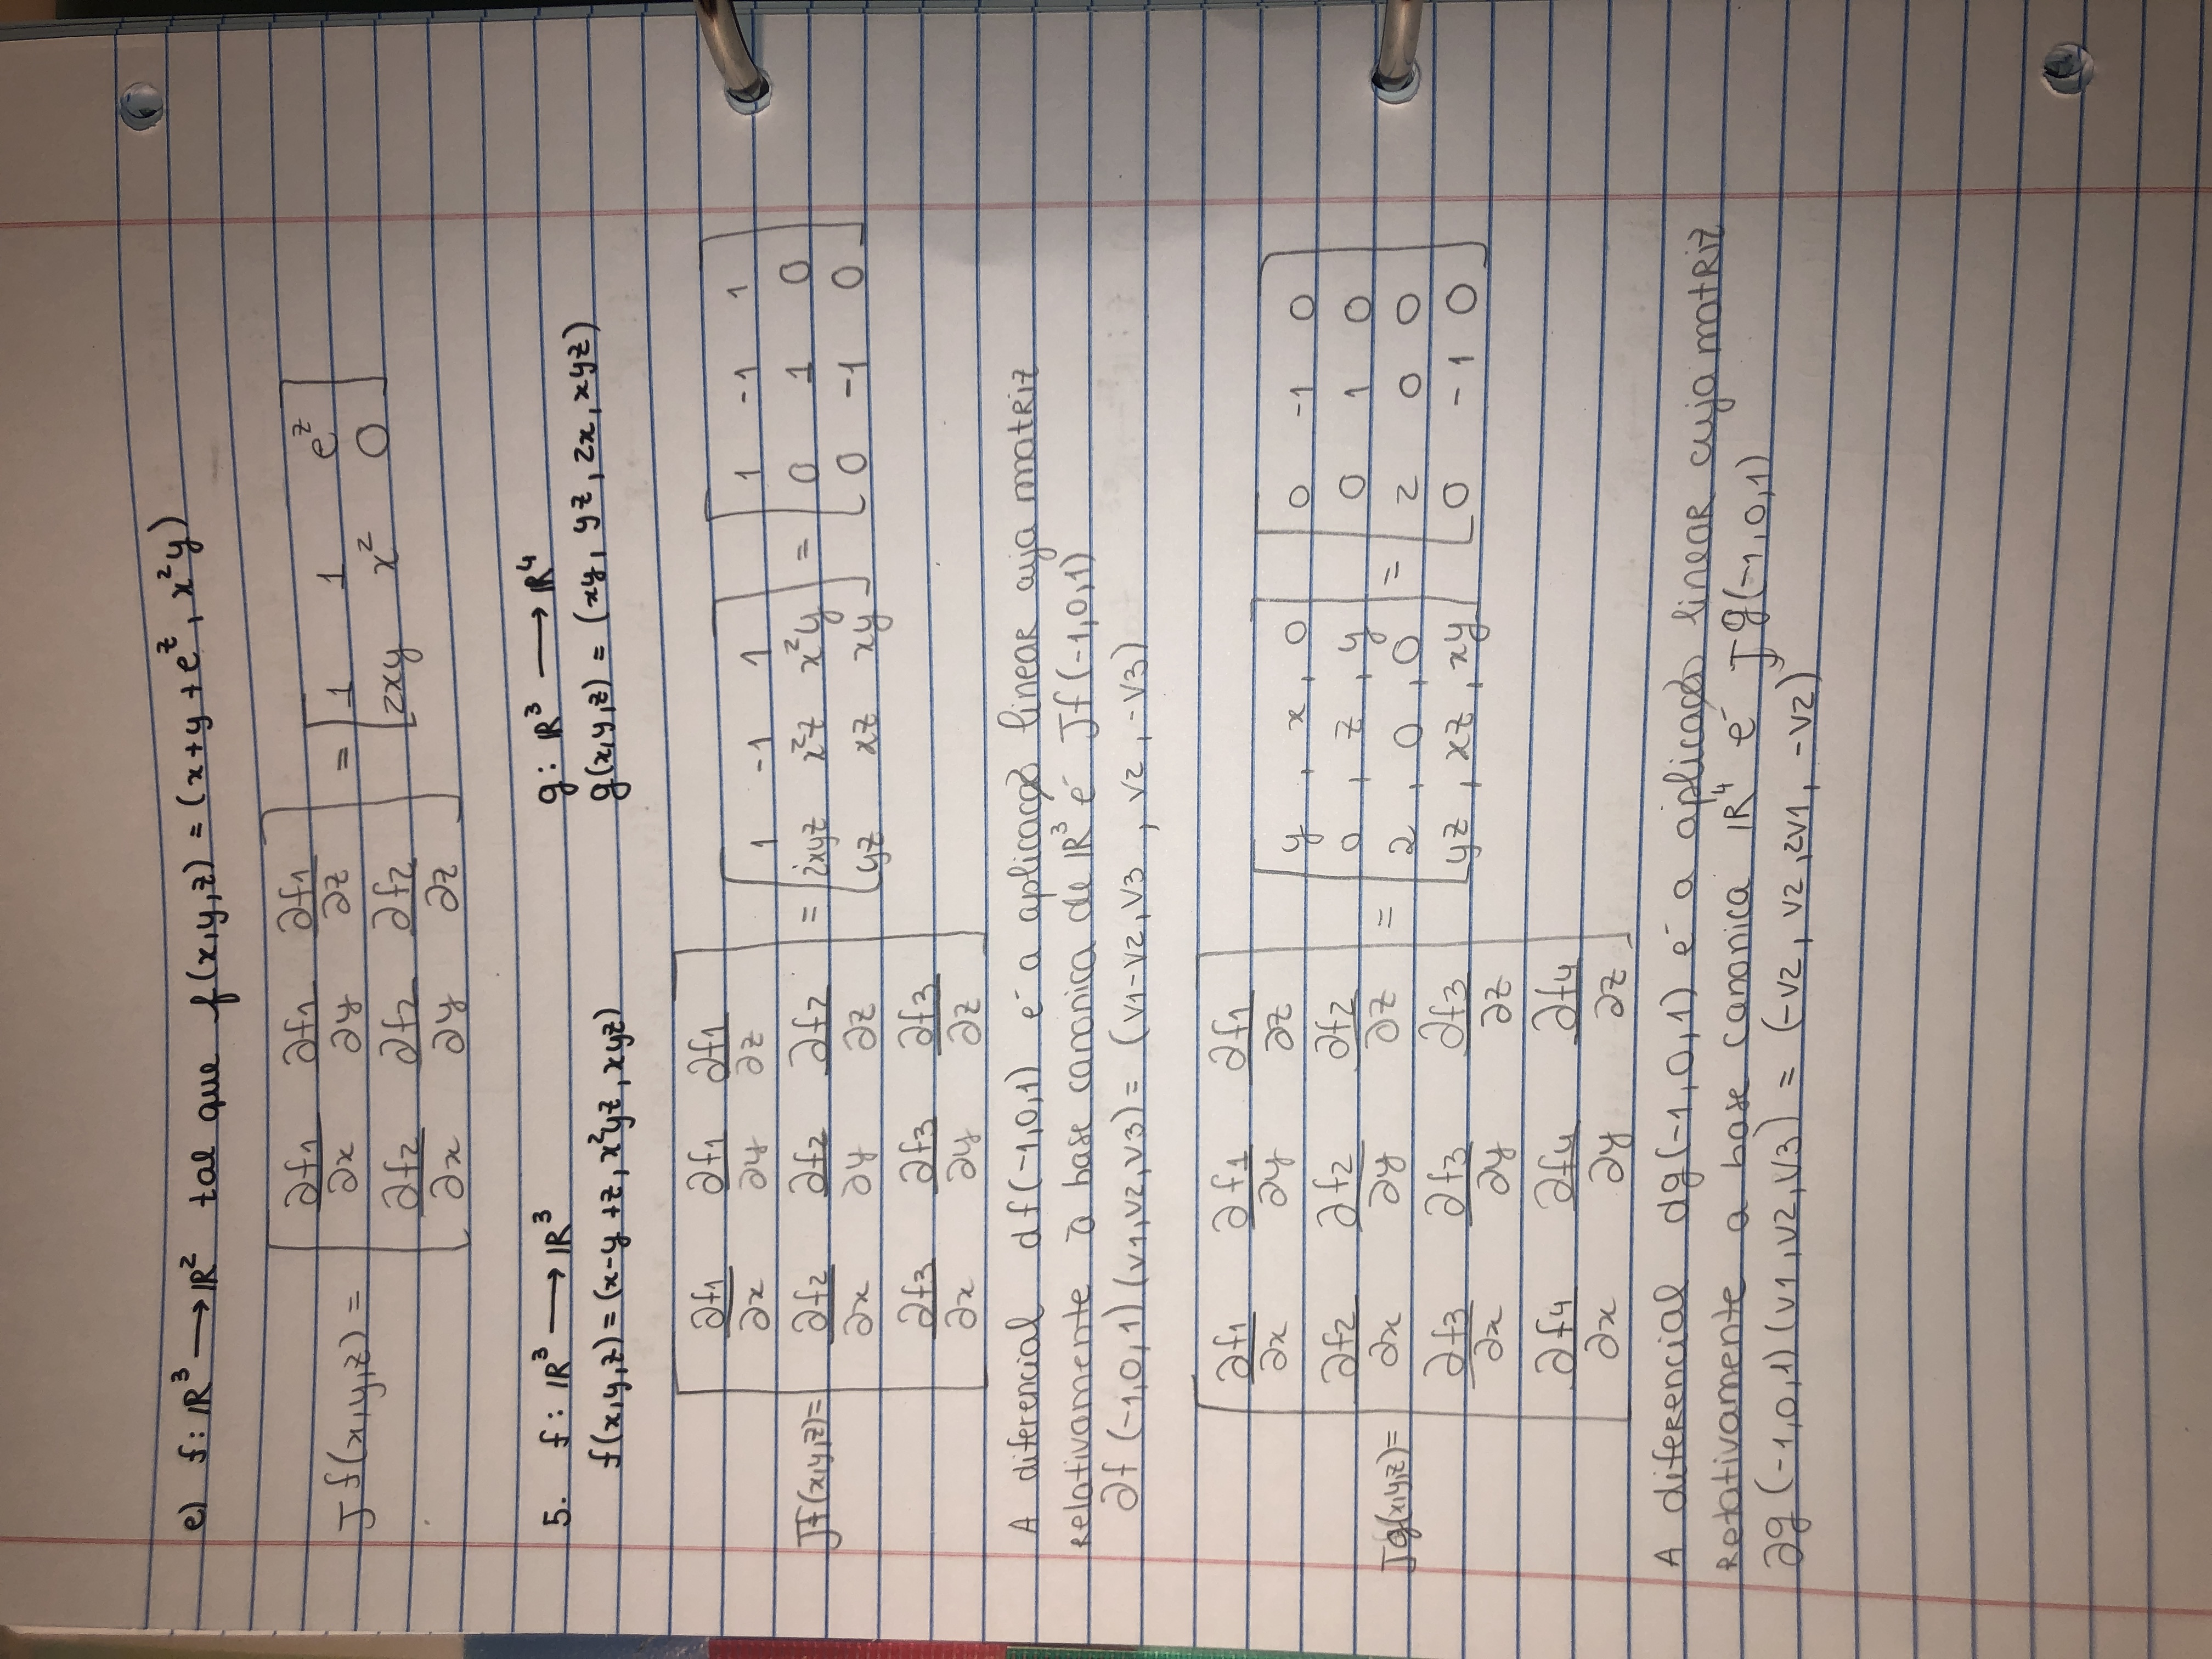 e) f: ℝ³ → ℝ² tal que f(x,y,z) = (x+y+e^z, x²y)
Jf(x,y,z) = [∂f1/∂x ∂f1/∂y ∂f1/∂z; ∂f2/∂x ∂f2/∂y ∂f2/∂z] = [1 1 e^z; 2xy x² 0]
5. f: ℝ³ → ℝ³ g: ℝ³ → ℝ⁴
f(x,y,z) = (x-y+z, x²yz, xyz) g(x,y,z) = (xy, yz, 2x, xyz)
Jf(x,y,z) = [∂f1/∂x ∂f1/∂y ∂f1/∂z; ∂f2/∂x ∂f2/∂y ∂f2/∂z; ∂f3/∂x ∂f3/∂y ∂f3/∂z] = [1 -1 1; 2xyz x²z x²y; yz xz xy] = [1 -1 1; 0 1 0; 0 -1 0]
A diferencial df(-1,0,1) é a aplicação linear cuja matriz
relativamente à base canonica de ℝ³ é Jf(-1,0,1)
∂f(-1,0,1)(v1,v2,v3) = (v1-v2,v3, v2, -v3)
Jg(x,y,z) = [∂f1/∂x ∂f1/∂y ∂f1/∂z; ∂f2/∂x ∂f2/∂y ∂f2/∂z; ∂f3/∂x ∂f3/∂y ∂f3/∂z; ∂f4/∂x ∂f4/∂y ∂f4/∂z] = [y, x, 0; 0, z, y; 2, 0, 0; yz, xz, xy] = [0 -1 0; 0 1 0; 2 0 0; 0 -1 0]
A diferencial dg(-1,0,1) é a aplicação linear cuja matriz
relativamente a base canonica ℝ⁴ é Jg(-1,0,1)
∂g(-1,0,1)(v1,v2,v3) = (-v2, v2, 2v1, -v2)